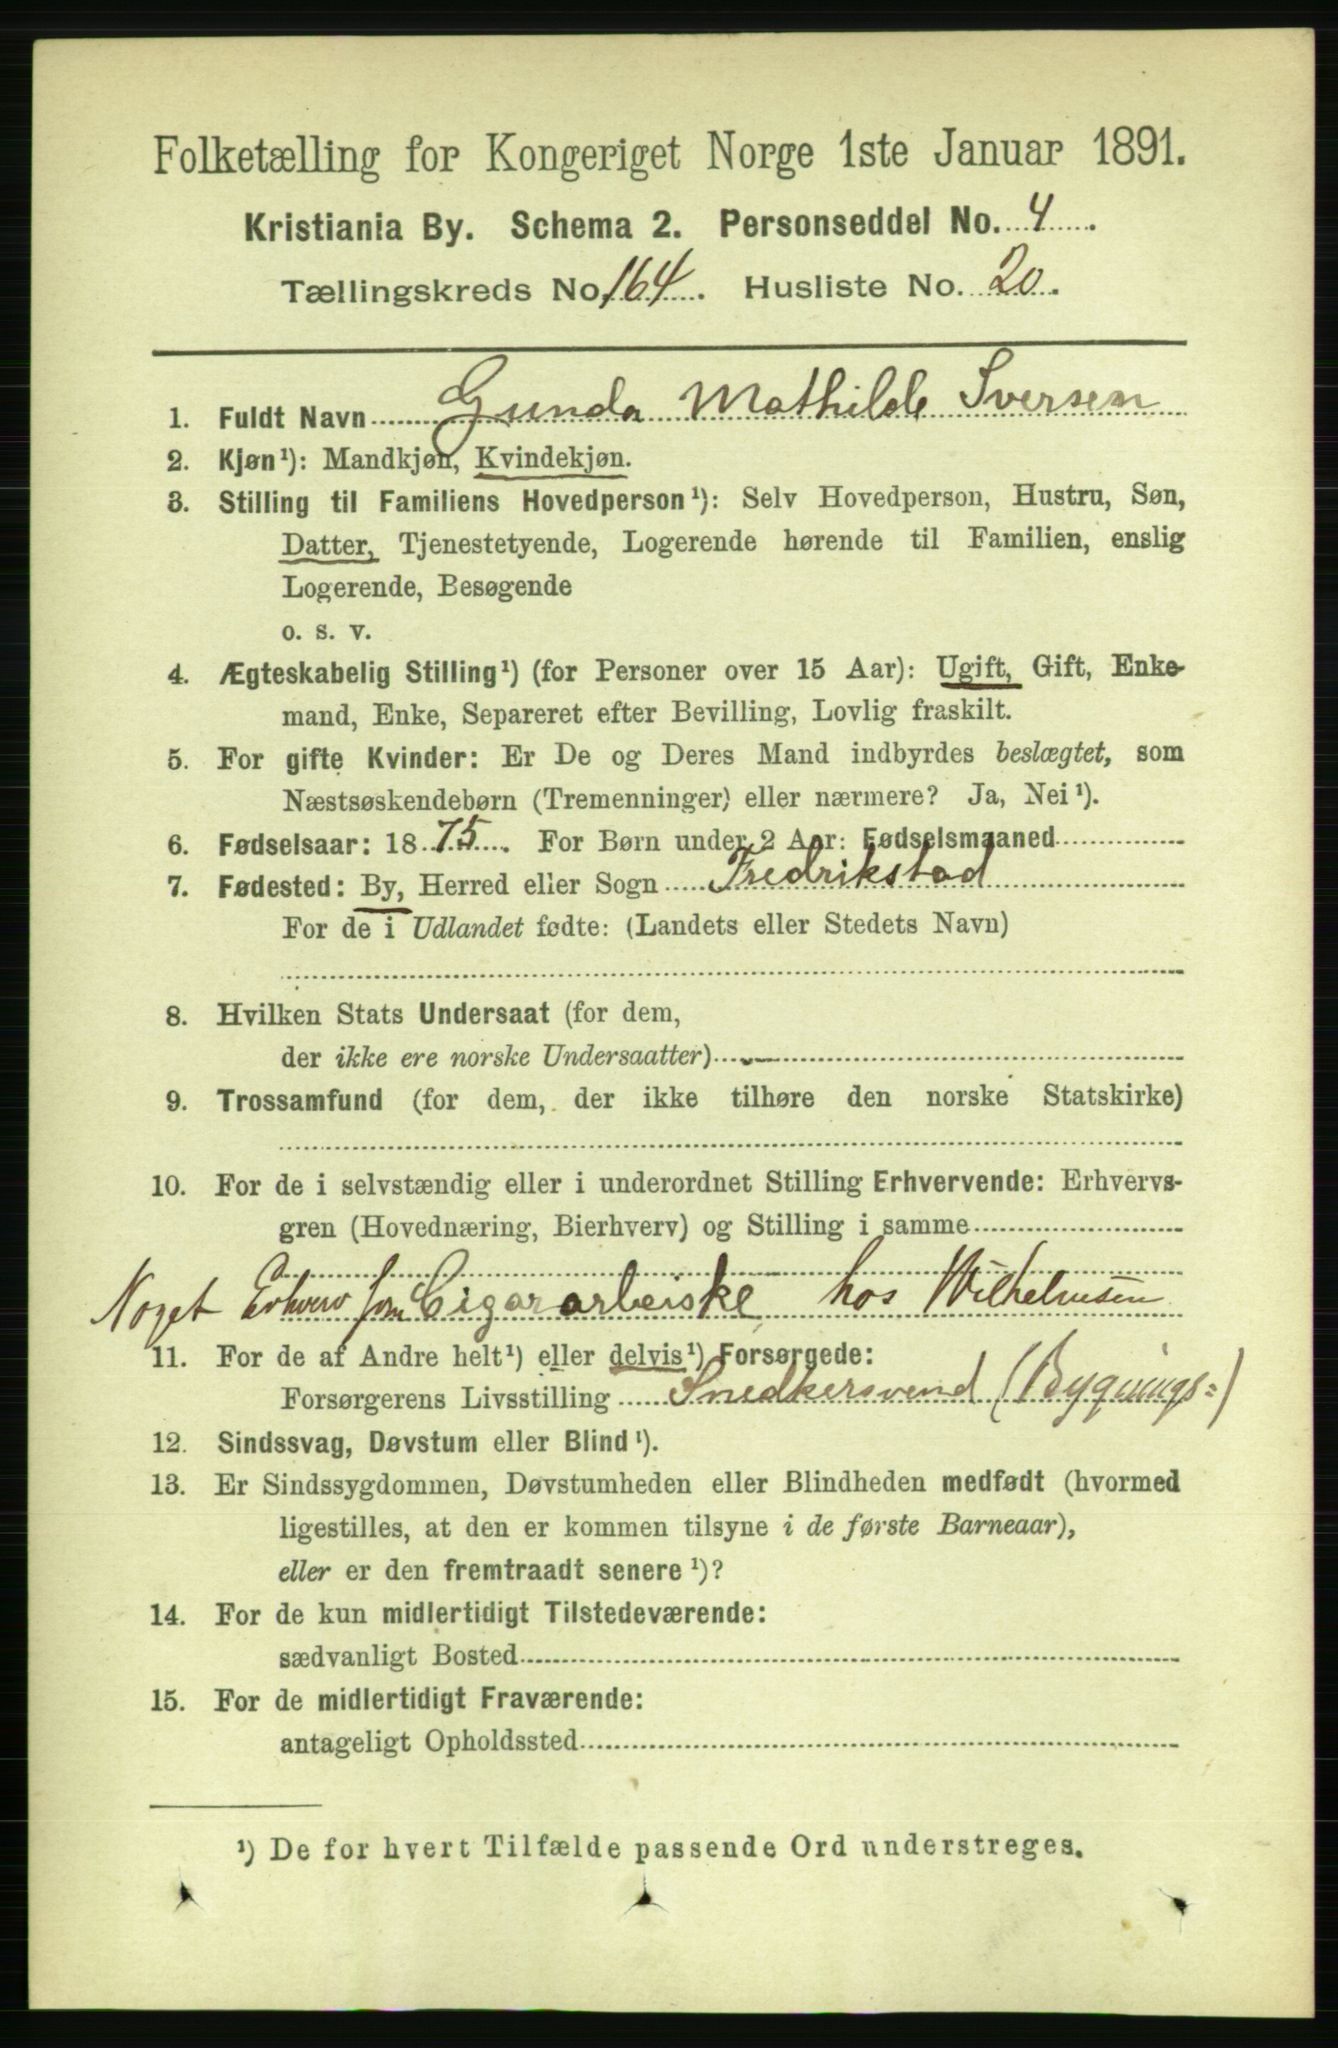 Folketælling for Kongeriget Norge 1ste Januar 1891.
Kristiania By. Schema 2. Personseddel No. 4.
Tællingskreds No. 164. Husliste No. 20.
1. Fuldt Navn Gunda Mathilde Iversen
2. Kjøn¹): Mandkjøn, Kvindekjøn.
3. Stilling til Familiens Hovedperson¹): Selv Hovedperson, Hustru, Søn,
Datter, Tjenestetyende, Logerende hørende til Familien, enslig
Logerende, Besøgende
o. s. v.
4. Ægteskabelig Stilling¹) (for Personer over 15 Aar): Ugift, Gift, Enke-
mand, Enke, Separeret efter Bevilling, Lovlig fraskilt.
5. For gifte Kvinder: Er De og Deres Mand indbyrdes beslægtet, som
Næstsøskendebørn (Tremenninger) eller nærmere? Ja, Nei¹).
6. Fødselsaar: 1875. For Børn under 2 Aar: Fødselsmaaned
7. Fødested: By, Herred eller Sogn Fredrikstad
For de i Udlandet fødte: (Landets eller Stedets Navn)
8. Hvilken Stats Undersaat (for dem,
der ikke ere norske Undersaatter)
9. Trossamfund (for dem, der ikke tilhøre den norske Statskirke)
10. For de i selvstændig eller i underordnet Stilling Erhvervende: Erhvervs-
gren (Hovednæring, Bierhverv) og Stilling i samme
Noget Erhverv som Cigararbeiske hos Wilhelmsen
11. For de af Andre helt¹) eller delvis¹) Forsørgede:
Forsørgerens Livsstilling Snedkersvend (Bygnings=)
12. Sindssvag, Døvstum eller Blind¹).
13. Er Sindssygdommen, Døvstumheden eller Blindheden medfødt (hvormed
ligestilles, at den er kommen tilsyne i de første Barneaar),
eller er den fremtraadt senere¹)?
14. For de kun midlertidigt Tilstedeværende:
sædvanligt Bosted
15. For de midlertidigt Fraværende:
antageligt Opholdssted
¹) De for hvert Tilfælde passende Ord understreges.